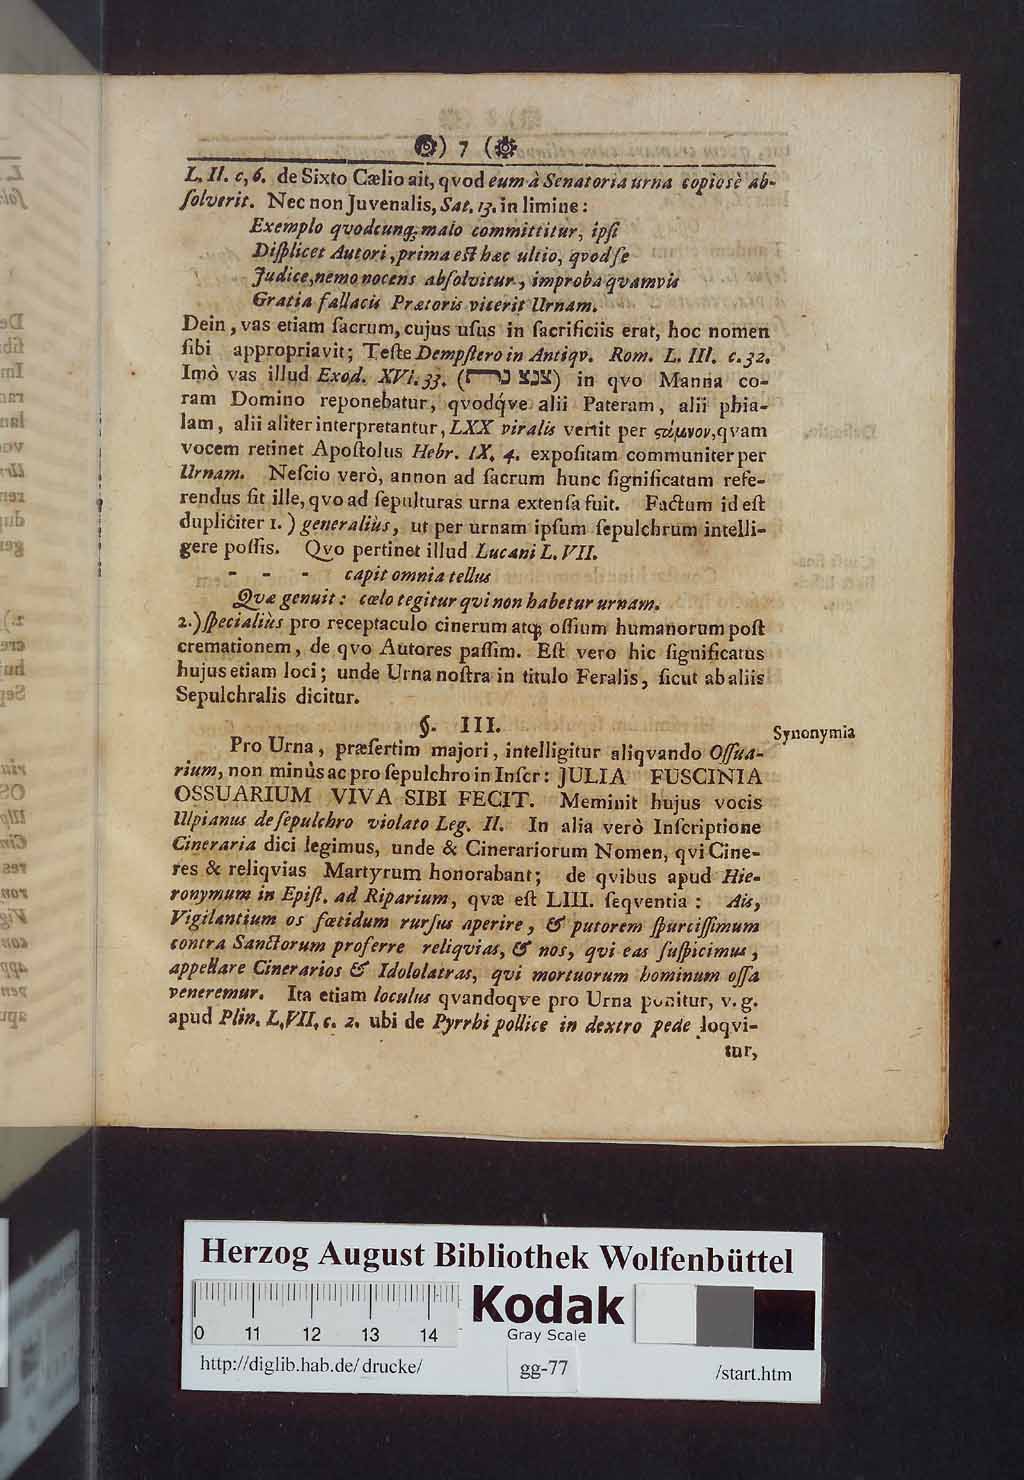 ) 7 (
L. II. c, 6. de Sixto Cælio ait, qvod eum à Senatoria urna copiosè ab-
ſolverit. Nec non Juvenalis, Sat. 13. in limine:
Exemplo qvodcunq; malo committitur, ipſi
Diſplicet Autori, prima eſt hæc ultio, qvod ſe
Judice, nemo nocens abſolvitur, improba qvamvis
Gratia fallacis Prætoris vicerit Urnam.
Dein, vas etiam ſacrum, cujus uſus in ſacrificiis erat, hoc nomen
ſibi appropriavit; Teſte Dempſtero in Antiqv. Rom. L. III. c. 32.
Imò vas illud Exod. XVI. 33. ( צנצנרת ) in qvo Manna co-
ram Domino reponebatur, qvodq́ve alii Pateram, alii phia-
lam, alii aliter interpretantur, LXX viralis vertit per ςάμνον, qvam
vocem retinet Apoſtolus Hebr. IX. 4. expoſitam communiter per
Urnam. Neſcio verò, annon ad ſacrum hunc ſignificatum refe-
rendus ſit ille, qvo ad ſepulturas urna extenſa fuit. Factum id eſt
dupliciter 1.) generaliùs, ut per urnam ipſum ſepulchrum intelli-
gere poſſis. Qvo pertinet illud Lucani L. VII.
- - - capit omnia tellus
Qvæ genuit: cœlo tegitur qvi non habetur urnam.
2.) ſpecialiùs pro receptaculo cinerum atq; oſſium humanorum poſt
cremationem, de qvo Autores paſſim. Eſt vero hic ſignificatus
hujus etiam loci; unde Urna noſtra in titulo Feralis, ſicut ab aliis
Sepulchralis dicitur.
§. III.
Synonymia
Pro Urna, præſertim majori, intelligitur aliqvando Oſſua-
rium, non minùs ac pro ſepulchro in Inſcr: JULIA FUSCINIA
OSSUARIUM VIVA SIBI FECIT. Meminit hujus vocis
Ulpianus de ſepulchro violato Leg. II. In alia verò Inſcriptione
Cineraria dici legimus, unde & Cinerariorum Nomen, qvi Cine-
res & reliqvias Martyrum honorabant; de qvibus apud Hie-
ronymum in Epiſt. ad Riparium, qvæ eſt LIII. ſeqventia: Ais,
Vigilantium os fœtidum rurſus aperire, & putorem ſpurciſſimum
contra Sanctorum proferre reliqvias, & nos, qvi eas ſuſpicimus,
appellare Cinerarios & Idololatras, qvi mortuorum hominum oſſa
veneremur. Ita etiam loculus qvandoqve pro Urna ponitur, v. g.
apud Plin. L. VII. c. 2. ubi de Pyrrhi pollice in dextro pede loqvi-
tur,
Herzog August Bibliothek Wolfenbüttel
0 11 12 13 14
Kodak
Gray Scale
http://diglib.hab.de/drucke/
gg-77
/start.htm